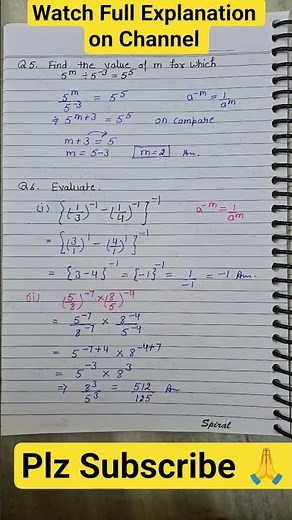 Watch Full Explanation
on Channel
Q5. Find the value of m for which
5^m ÷ 5^-3 = 5^5
5^m/5^-3 = 5^5    a^-m = 1/a^m
⇒ 5^m+3 = 5^5 on compare
m+3 = 5
m = 5-3 m=2 An.
Q6. Evaluate.
(i) {(1/3)^-1 - (1/4)^-1}^-1    a^-m = 1/a^m
= {(3/1)^1 - (4/1)^1}^-1
= {3-4}^-1 = {-1}^-1 = 1/-1 = -1 Ans.
(ii) (5/8)^-7 × (8/5)^-4
= 5^-7/8^-7 × 8^-4/5^-4
= 5^-7+4 × 8^-4+7
= 5^-3 × 8^3
⇒ 8^3/5^3 = 512/125 An
Spiral
Plz Subscribe 🙏